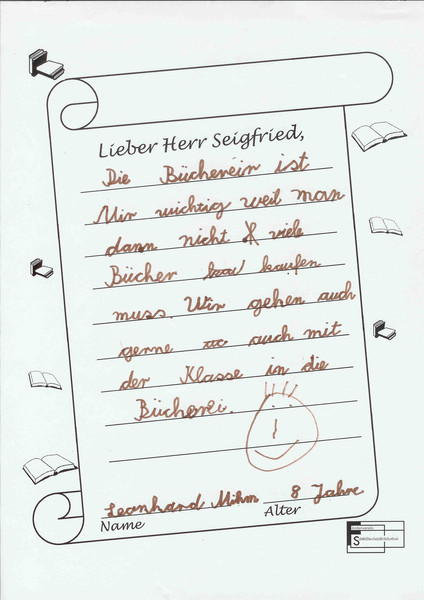 Lieber Herr Seigfried,
Die Bücherein ist
Mir wichtig weil man
dann nicht viele
Bücher kaufen
muss. Wir gehen auch
gerne auch mit
der Klasse in die
Bücherei.
Leonhard Mihm 8 Jahre
Name Alter